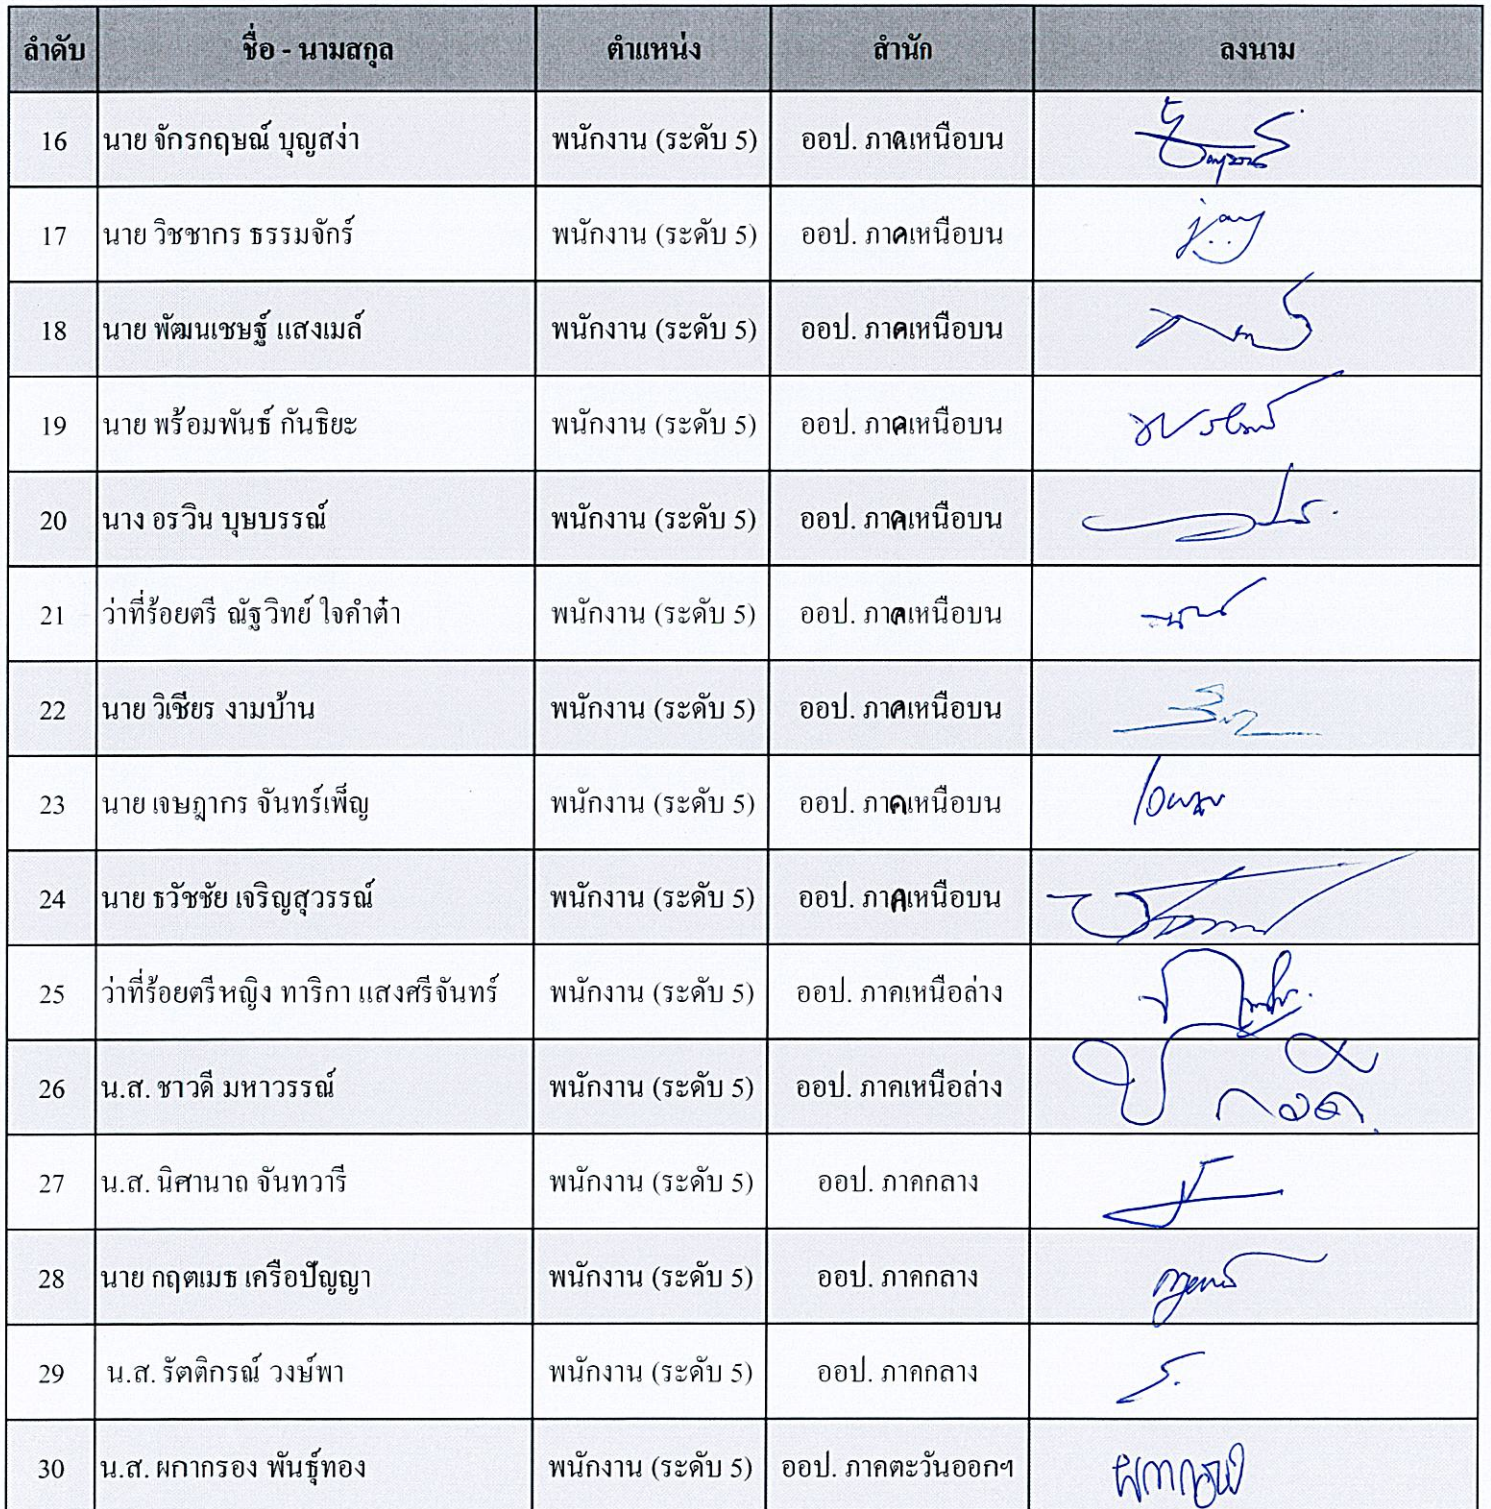 ลำดับ ชื่อ - นามสกุล ตำแหน่ง สำนัก ลงนาม
16 นาย จักรกฤษณ์ บุญสง่า พนักงาน (ระดับ 5) ออป. ภาคเหนือบน
17 นาย วิชชากร ธรรมจักร์ พนักงาน (ระดับ 5) ออป. ภาคเหนือบน
18 นาย พัฒนเชษฐ์ แสงเมล์ พนักงาน (ระดับ 5) ออป. ภาคเหนือบน
19 นาย พร้อมพันธ์ กันธิยะ พนักงาน (ระดับ 5) ออป. ภาคเหนือบน
20 นาง อรวิน บุษบรรณ์ พนักงาน (ระดับ 5) ออป. ภาคเหนือบน
21 ว่าที่ร้อยตรี ณัฐวิทย์ ใจคำต๋า พนักงาน (ระดับ 5) ออป. ภาคเหนือบน
22 นาย วิเชียร งามบ้าน พนักงาน (ระดับ 5) ออป. ภาคเหนือบน
23 นาย เจษฎากร จันทร์เพ็ญ พนักงาน (ระดับ 5) ออป. ภาคเหนือบน
24 นาย ธวัชชัย เจริญสุวรรณ์ พนักงาน (ระดับ 5) ออป. ภาคเหนือบน
25 ว่าที่ร้อยตรีหญิง ทาริกา แสงศรีจันทร์ พนักงาน (ระดับ 5) ออป. ภาคเหนือล่าง
26 น.ส. ชาวดี มหาวรรณ์ พนักงาน (ระดับ 5) ออป. ภาคเหนือล่าง
27 น.ส. นิศานาถ จันทวารี พนักงาน (ระดับ 5) ออป. ภาคกลาง
28 นาย กฤตเมธ เครือปัญญา พนักงาน (ระดับ 5) ออป. ภาคกลาง
29 น.ส. รัตติกรณ์ วงษ์พา พนักงาน (ระดับ 5) ออป. ภาคกลาง
30 น.ส. ผกากรอง พันธุ์ทอง พนักงาน (ระดับ 5) ออป. ภาคตะวันออกฯ ผกากรอง